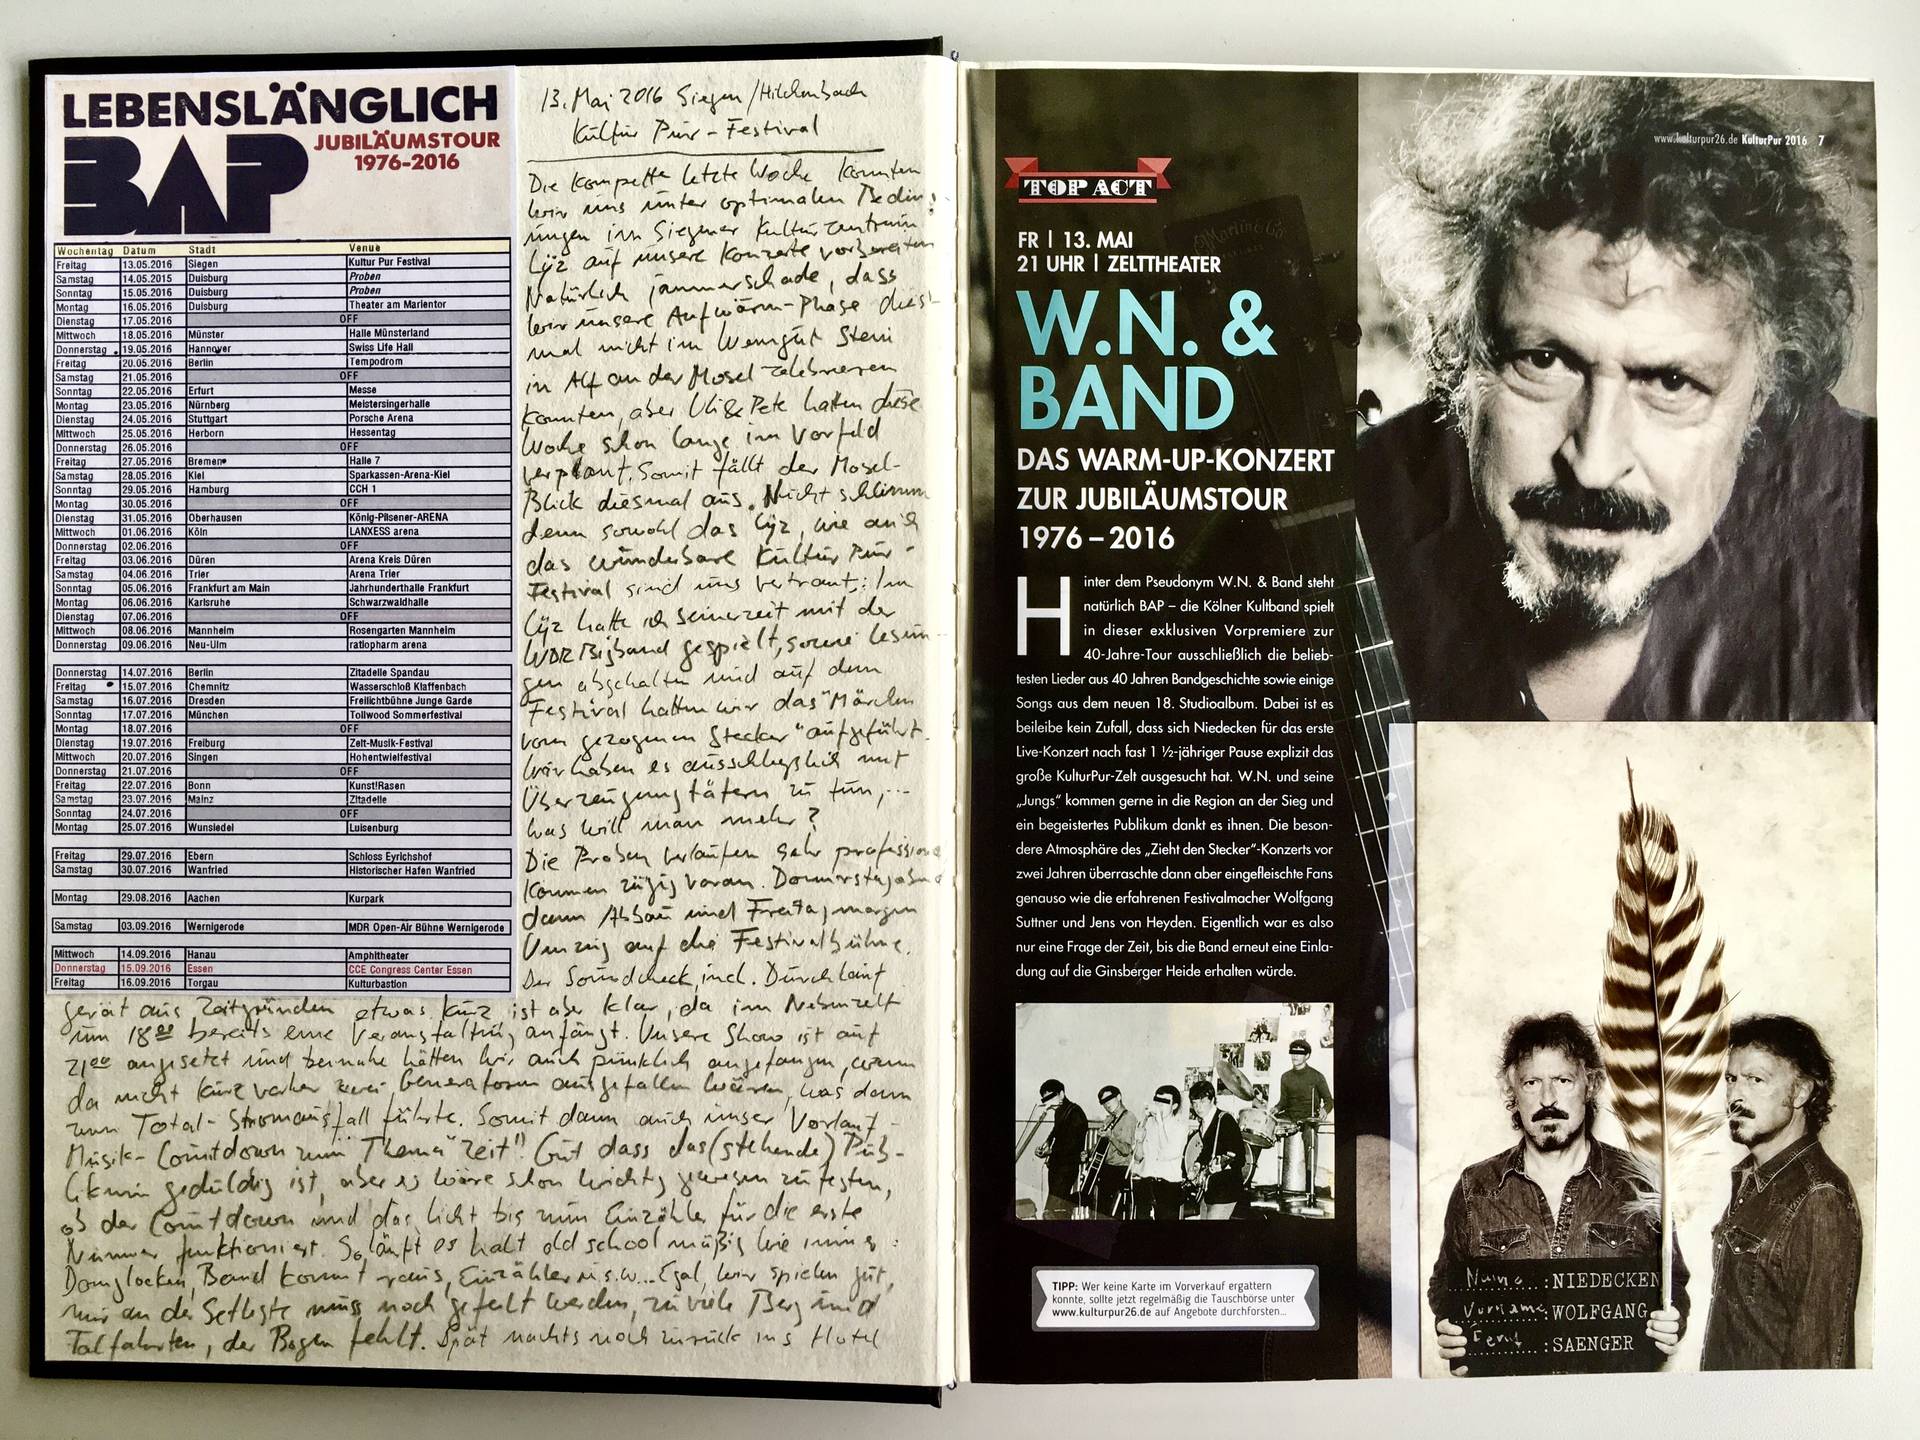 LEBENSLÄNGLICH
BAP
JUBILÄUMSTOUR
1976-2016
Wochentag Datum Stadt Venue
Freitag 13.05.2016 Siegen Kultur Pur Festival
Samstag 14.05.2015 Duisburg Proben
Sonntag 15.05.2016 Duisburg Proben
Montag 16.05.2016 Duisburg Theater am Marientor
Dienstag 17.05.2016 OFF
Mittwoch 18.05.2016 Münster Halle Münsterland
Donnerstag 19.05.2016 Hannover Swiss Life Hall
Freitag 20.05.2016 Berlin Tempodrom
Samstag 21.05.2016 OFF
Sonntag 22.05.2016 Erfurt Messe
Montag 23.05.2016 Nürnberg Meistersingerhalle
Dienstag 24.05.2016 Stuttgart Porsche Arena
Mittwoch 25.05.2016 Herborn Hessentag
Donnerstag 26.05.2016 OFF
Freitag 27.05.2016 Bremen Halle 7
Samstag 28.05.2016 Kiel Sparkassen-Arena-Kiel
Sonntag 29.05.2016 Hamburg CCH 1
Montag 30.05.2016 OFF
Dienstag 31.05.2016 Oberhausen König-Pilsener-ARENA
Mittwoch 01.06.2016 Köln LANXESS arena
Donnerstag 02.06.2016 OFF
Freitag 03.06.2016 Düren Arena Kreis Düren
Samstag 04.06.2016 Trier Arena Trier
Sonntag 05.06.2016 Frankfurt am Main Jahrhunderthalle Frankfurt
Montag 06.06.2016 Karlsruhe Schwarzwaldhalle
Dienstag 07.06.2016 OFF
Mittwoch 08.06.2016 Mannheim Rosengarten Mannheim
Donnerstag 09.06.2016 Neu-Ulm ratiopharm arena
Donnerstag 14.07.2016 Berlin Zitadelle Spandau
Freitag 15.07.2016 Chemnitz Wasserschloß Klaffenbach
Samstag 16.07.2016 Dresden Freilichtbühne Junge Garde
Sonntag 17.07.2016 München Tollwood Sommerfestival
Montag 18.07.2016 OFF
Dienstag 19.07.2016 Freiburg Zelt-Musik-Festival
Mittwoch 20.07.2016 Singen Hohentwielfestival
Donnerstag 21.07.2016 OFF
Freitag 22.07.2016 Bonn Kunst!Rasen
Samstag 23.07.2016 Mainz Zitadelle
Sonntag 24.07.2016 OFF
Montag 25.07.2016 Wunsiedel Luisenburg
Freitag 29.07.2016 Ebern Schloss Eyrichshof
Samstag 30.07.2016 Wanfried Historischer Hafen Wanfried
Montag 29.08.2016 Aachen Kurpark
Samstag 03.09.2016 Wernigerode MDR Open-Air Bühne Wernigerode
Mittwoch 14.09.2016 Hanau Amphitheater
Donnerstag 15.09.2016 Essen CCE Congress Center Essen
Freitag 16.09.2016 Torgau Kulturbastion
13. Mai 2016 Siegen/Hilchenbach
Kultur Pur-Festival
Die komplette letzte Woche konnten
wir uns unter optimalen Bedin-
ungen im Siegener Kulturzentrum
Lÿz auf unsere Konzerte vorbereiten
Natürlich jammerschade, dass
wir unsere Aufwärm-Phase dies-
mal nicht im Weingut Stein
in Alf an der Mosel zelebrieren
konnten, aber Uli & Pete hatten diese
Woche schon lange im Vorfeld
verplant. Somit fällt der Mosel-
Blick diesmal aus. Nicht schlimm
denn sowohl das Lÿz, wie auch
das wunderbare Kultur Pur-
Festival sind uns vertraut: Im
Lÿz hatte ich seinerzeit mit der
WDR Bigband gespielt, sowie Lesun-
gen abgehalten und auf dem
Festival hatten wir das "Märchen
vom gezogenen Stecker" aufgeführt.
Wir haben es ausschließlich mit
Überzeugungstätern zu tun,...
was will man mehr?
Die Proben verlaufen sehr profession
kommen zügig voran. Donnerstagabend
dann Abbau und Freitagmorgen
Umzug auf die Festivalbühne.
Der Soundcheck, incl. Durchlauf
gerät aus Zeitgründen etwas kurz, ist aber klar, da im Nebenzelt
um 18⁰⁰ bereits eine Veranstaltung anfängt. Unsere Show ist auf
21⁰⁰ angesetzt und beinahe hätten wir auch pünktlich angefangen, wenn
da nicht kurz vorher zwei Generatoren ausgefallen wären, was dann
zum Total-Stromausfall führte. Somit dann auch unser Vorlauf-
Musik-Countdown zum Thema "Zeit"! Gut dass das (stehende) Pub-
likum geduldig ist, aber es wäre schon wichtig gewesen zu testen,
ob der Countdown und das Licht bis zum Einzähler für die erste
Nummer funktioniert. So läuft es halt old school mäßig wie immer:
Domglocken, Band kommt raus, Einzähler u.s.w... Egal, wir spielen gut,
nur an der Setliste muss noch gefeilt werden, zu viele Berg und
Talfahrten, der Bogen fehlt. Spät nachts noch zurück ins Hotel
www.kulturpur26.de KulturPur 2016 7
TOP ACT
FR | 13. MAI
21 UHR | ZELTTHEATER
W.N. &
BAND
DAS WARM-UP-KONZERT
ZUR JUBILÄUMSTOUR
1976 – 2016
Hinter dem Pseudonym W.N. & Band steht
natürlich BAP – die Kölner Kultband spielt
in dieser exklusiven Vorpremiere zur
40-Jahre-Tour ausschließlich die belieb-
testen Lieder aus 40 Jahren Bandgeschichte sowie einige
Songs aus dem neuen 18. Studioalbum. Dabei ist es
beileibe kein Zufall, dass sich Niedecken für das erste
Live-Konzert nach fast 1 ½-jähriger Pause explizit das
große KulturPur-Zelt ausgesucht hat. W.N. und seine
„Jungs“ kommen gerne in die Region an der Sieg und
ein begeistertes Publikum dankt es ihnen. Die beson-
dere Atmosphäre des „Zieht den Stecker“-Konzerts vor
zwei Jahren überraschte dann aber eingefleischte Fans
genauso wie die erfahrenen Festivalmacher Wolfgang
Suttner und Jens von Heyden. Eigentlich war es also
nur eine Frage der Zeit, bis die Band erneut eine Einla-
dung auf die Ginsberger Heide erhalten würde.
TIPP: Wer keine Karte im Vorverkauf ergattern
konnte, sollte jetzt regelmäßig die Tauschbörse unter
www.kulturpur26.de auf Angebote durchforsten...
Name :NIEDECKEN
Vorname :WOLFGANG
Beruf :SAENGER